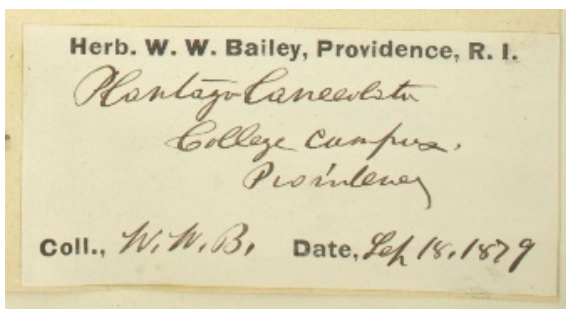 Herb. W. W. Bailey, Providence, R. I.
Plantago lanceolata
College Campus.
Providence
Coll., W. W. B. Date, Sep 18. 1879